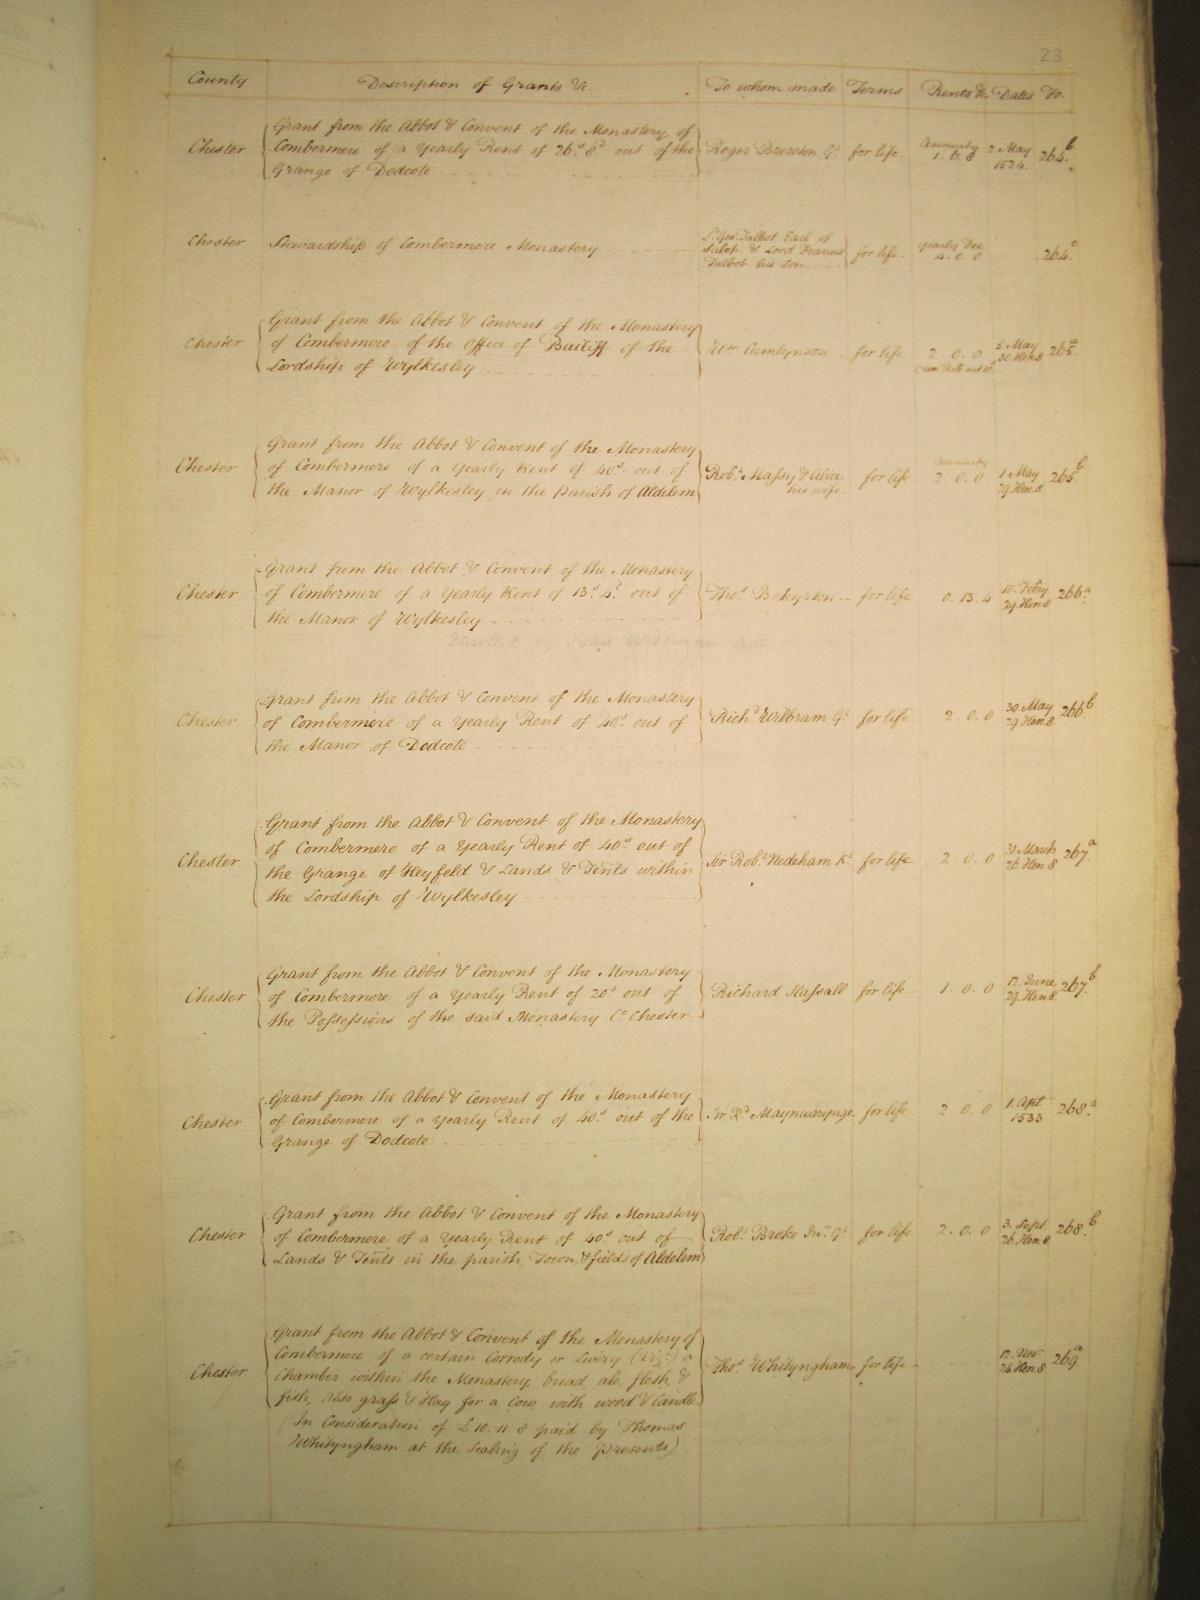 23
County Description of Grants &c. To whom made Terms Rents &c Dates Fo.
Chester Grant from the Abbot & Convent of the Monastery of
Combermere of a Yearly Rent of 26.s 8.d out of the
Grange of Dodcote
Roger Brereton G.t for life Annuity 1. 6. 8 2 May 1524. 264.b
Chester Stewardship of Combermere Monastery
Geo. Talbot Earl of
Salop & Lord Francis
Talbot his son
for life yearly Fee 4. 0. 0 264.c
Chester Grant from the Abbot & Convent of the Monastery
of Combermere of the Office of Bailiff of the
Lordship of Wylkesley
W.m Cumlynson for life 2. 0. 0 5. May 30 Hen. 8 265.a
Chester Grant from the Abbot & Convent of the Monastery
of Combermere of a Yearly Rent of 40.s out of
the Manor of Wylkesley in the Parish of Aldelem
Rob.t Massy & Alice
his wife
for life annuity 2. 0. 0 1. May 29. Hen. 8. 265.b
Chester Grant from the Abbot & Convent of the Monastery
of Combermere of a Yearly Rent of 13.s 4.d out of
the Manor of Wylkesley
Tho.s Bekyrton for life 0. 13. 4 10. Feb.ry 29. Hen. 8 266.a
Chester Grant from the Abbot & Convent of the Monastery
of Combermere of a Yearly Rent of 40.s out of
the Manor of Dodcote
Rich.d Wilbram G.t for life 2. 0. 0 30. May 29. Hen. 8. 266.b
Chester Grant from the Abbot & Convent of the Monastery
of Combermere of a Yearly Rent of 40.s out of
the Grange of Heyfeld & Lands & Ten.ts within
the Lordship of Wylkesley
Sir Rob.t Nedeham K.t for life 2. 0. 0 31 March 26. Hen. 8 267.a
Chester Grant from the Abbot & Convent of the Monastery
of Combermere of a Yearly Rent of 20.s out of
the Possessions of the said Monastery C.o Chester
Richard Hassall for life 1. 0. 0 12. June 29. Hen. 8. 267.b
Chester Grant from the Abbot & Convent of the Monastery
of Combermere of a yearly Rent of 40.s out of the
Grange of Dodcote
Sir R.d Maynwarynge for life 2. 0. 0 1. Ap.l 1533 268.a
Chester Grant from the Abbot & Convent of the Monastery
of Combermere of a Yearly Rent of 40.s out of
Lands & Ten.ts in the parish, Town, & fields of Aldelem
Rob.t Broke Jun.r G.t for life 2. 0. 0 3. Sept. 26. Hen. 8. 268.b
Chester Grant from the Abbot & Convent of the Monastery of
Combermere of a certain Corrody or Livery (viz.t) a
Chamber within the Monastery bread, ale, flesh, &
fish, also grass & Hay for a Cow with wood & Candle
(In Consideration of £10. 11. 8 paid by Thomas
Whityngham at the Sealing of the presents)
Tho.s Whityngham for life 12. Nov. 24. Hen. 8 269.a